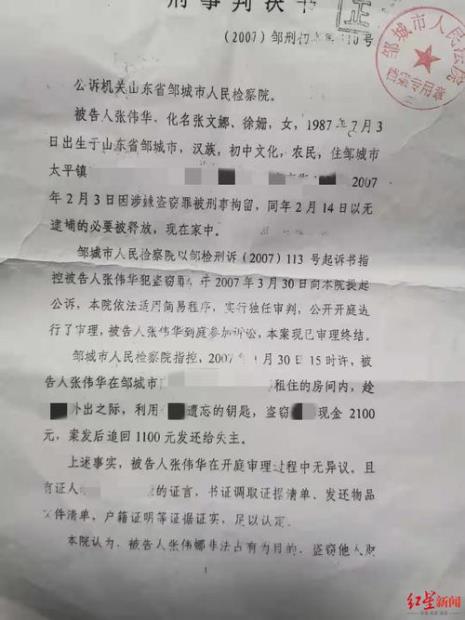 刑事判决书
正
(2007)邹刑初 10号
邹城市人民法院
档案专用章
公诉机关山东省邹城市人民检察院。
被告人张伟华,化名张文娜、徐娟,女,1987年7月3
日出生于山东省邹城市,汉族,初中文化,农民,住邹城市
太平镇 2007
年2月3日因涉嫌盗窃罪被刑事拘留,同年2月14日以无
逮捕的必要被释放,现在家中。
邹城市人民检察院以邹检刑诉(2007)113号起诉书指
控被告人张伟华犯盗窃罪,于2007年3月30日向本院提起
公诉,本院依法适用简易程序,实行独任审判,公开开庭进
行了审理,被告人张伟华到庭参加诉讼,本案现已审理终结。
邹城市人民检察院指控,2007年1月30日15时许,被
告人张伟华在邹城市 租住的房间内,趁
外出之际,利用 遗忘的钥匙,盗窃 现金2100
元,案发后追回1100元发还给失主。
上述事实,被告人张伟华在开庭审理过程中无异议,且
有证人 的证言,书证调取证据清单、发还物品
文件清单,户籍证明等证据证实,足以认定。
本院认为,被告人张伟娜非法占有为目的,盗窃他人财
1
红星新闻